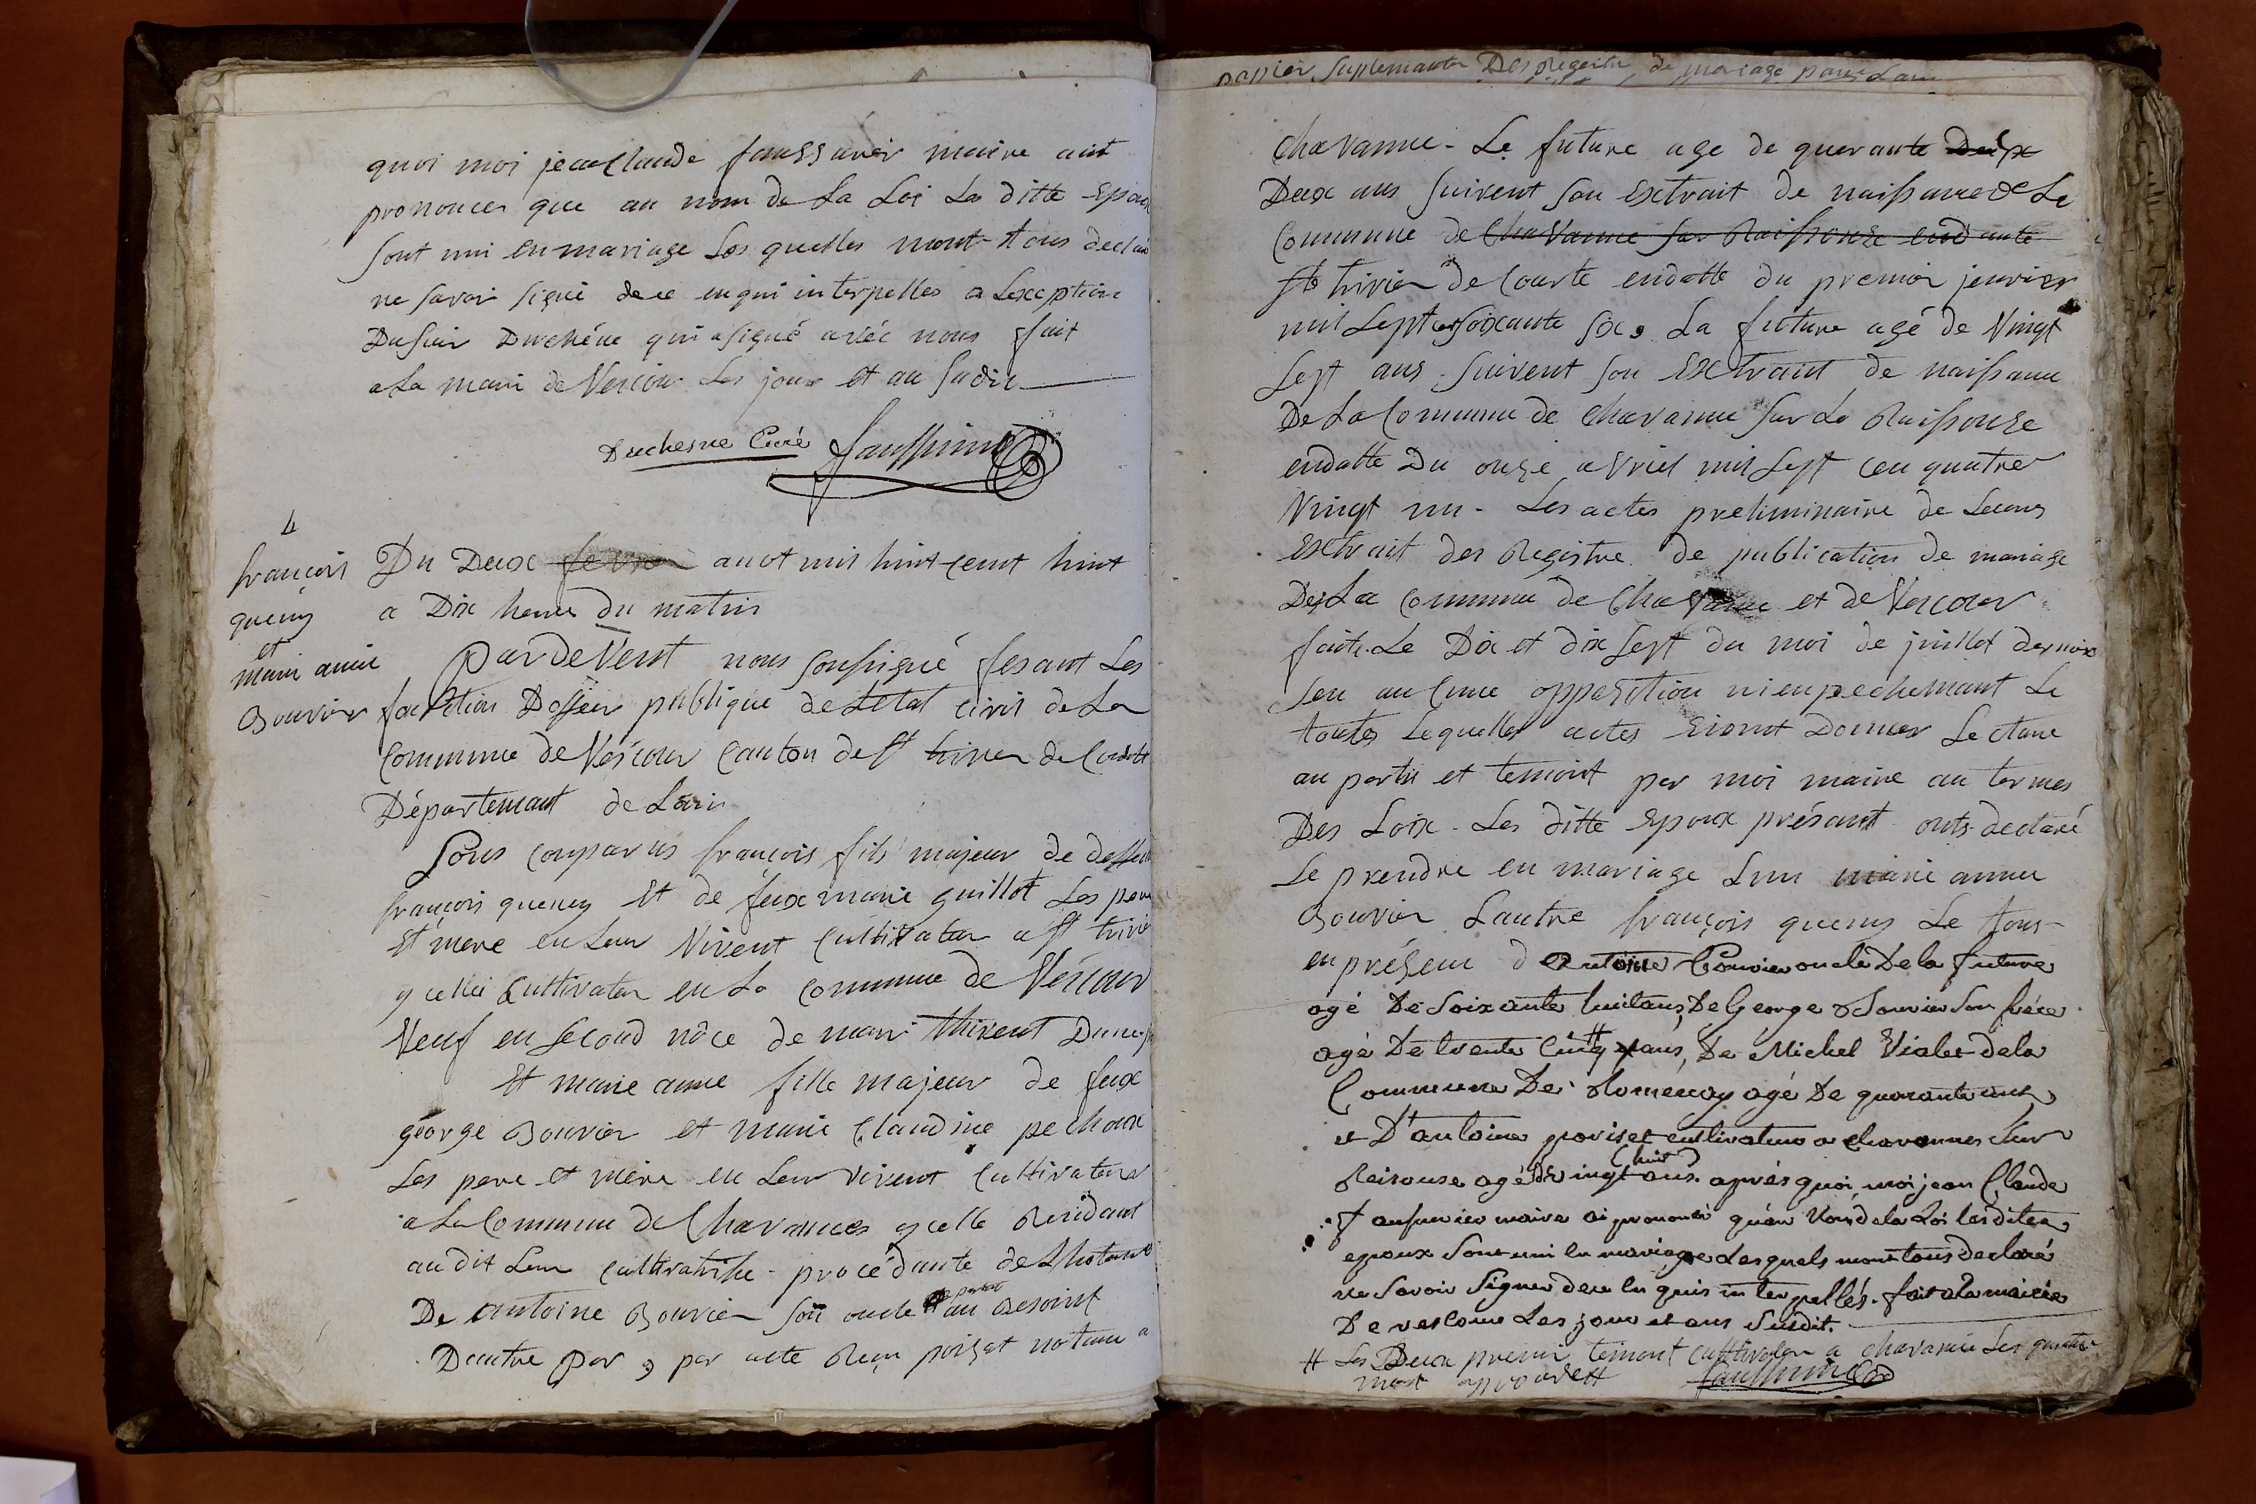 quoi moi jean Claude faussurier maire ait
prononcer que au nom de La Loi La ditte Epoux
sont uni en mariage Les quelles mont tous declaré
ne savoir signé de ce enqui interpelles a Lexception
Dusieur Duchéne qui asigné avéc nous fait
a La mairi de Vescour Les jour et an Sudit
Duchesne Curé
4
françois
queny
et
marie anne
Bouvier
Du Deux fevrier auot mis huit cent huit
a Dix heure du matin
Par deVent nous soussigné fesant Les
fonction Doffier publique de Letat civil de La
Commune de Vescour Canton de st trivier de Courte
Département de Lain
Sons comparus françois fils majeur de deffunt
françois queny Et de feux marie guillot Les pere
Et mere en Leur Vivent Cultivateur a st trivier
y cellui Cultivateur en La commune de Vescour
Veuf en second nôce de mari thirent Dune
Et marie anne fille majeur de feux
géorge Bouvier et marie Claudine pechoux
Les pere et mere en Leur vivent Cultivateur
a La Commune de Chavannes ycelle Residant
audit Lieu Cultivatrise - procédante de Lhotorité
De antoine Bouvier son oncle au besoint
Dautre par, par acte Reçu poizat notaire a
papier Suplemanter Des Registre de mariage pour Lan
Chavanne - Le future age de querante Deux
Deux ans suivent son Extrait de naissance de La
Commune de Chavanne sur Raissouze endante
st trivier de Courte endatte du premier jenvier
mil Sept cent soixante six, La future agé de Vingt
Sept ans suivent son Extrait de naissance
De La Commune de Chavanne sur La Raissouze
endatte Du onze avriel mil Sept cen quatre
Vingt un - Les actes preliminaire de Leurs
Extrait des Registre de publication de mariage
De La Commune de Chavanne et de Vescour
faite Le Dix et dix sept du moi de juillet dernier
sen aucune opposition ni enpechemant Le
toutes Lequelles actes Eiant Donner Lecture
au partis et temoint par moi maire au termes
Des Loix - Les ditte Epoux présant onts declaré
Se prendre en mariage Lun marie anne
Bouvier Lautre françois queny Le tous
en présence d antoine Bouvier oncle De la future
agé De Soixante huit ans, De George Bouvier Son frére
agé De trente Cinq ans, De Michel Vialet dela
Commune De Romenay agé De quarante ans
et D'antoine poriset cultivateur a chavannes Sur
Reisouse agé de vingt (huit) ans. aprés quoi, moi jean Claude
faussurier maire ai prononcé qu'au Nom dela Loi lesdites
epoux Sont uni en mariage Lesquels mont tous Declaré
ne Savoir Signer dece en quis interpellés. fait ala mairie
De vescour Les jour et ans Susdit.
# Les Deux premier temont Cultivateur a chavanne Les quatre
mot approuvé #